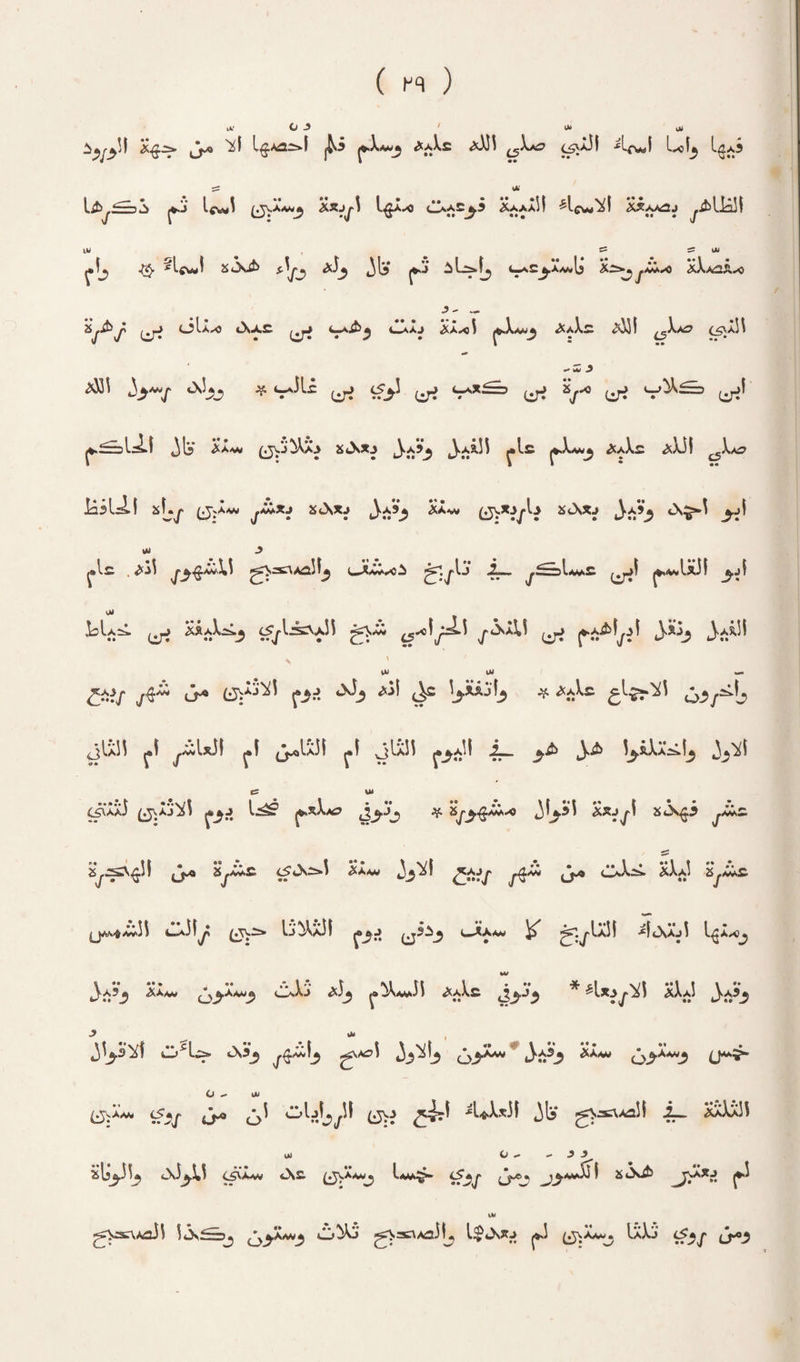 ( ٢٩ )
فيها وامّا اسماء النبىّ صلى الله عليه وسلم فلم أُحْصِها الّا من جهة الورود
الظاهر بصيغة الاسماء البيّنة فوعيت منها اربعة وستين اسما ثم ذكرها
مفصلة مشروحة فاستوعب واجاد ثم قال وله وراء هذه اسماء * وامّ
النبى صلى الله عليه وسلم امنة بنت وهب بن عبد مناف بن زهرة
ابن كلاب بن مرة بن كعب بن لؤى بن غالب * ووُلد رسول الله
صلى الله عليه وسلم عام الفيل وقيل بعده بثلاثين سنة قال الحاكم
ابو احمد وقيل بعده باربعين سنة وقيل بعده بعشر سنين رواه الحافظ
ابو القاسم ابن عساكر فى تاريخ دمشق والصحيح المشهور انّه عام
الفيل ونقل ابرهيم بن المنذر الحزامى شيخ البخارى وخليفة بن خيّاط
وآخرون الاجماع عليه * واتّفقوا على انه ولد يوم الاثنين من شهر ربيع
الاول واختلفوا هل هو فى اليوم الثانى ام الثامن ام العاشر ام الثانى
عشر فهذه اربعة اقوال مشهورة * وتوفى صلعم ضحى يوم الاثنين لثنتى
عشرة ليلة خلت من شهر ربيع الاول سنة احدى عشرة من الهجرة
ومنها ابتداء التاريخ كما سبق ودفن يوم الثلاثا حين زالت الشمس
وقيل ليلة الاربعاء * وتوفى عليه السلام وله ثلث وستون سنة وقيل
خمس وستون سنة وقيل ستون والاول اصحّ واشهر وقد جاءت الاقوال
الثلثة فى الصحيح قال العلماء الجمع بين الروايات ان من روى ستين
لم يعتبر هذه الكسور ومن روى خمسا وستين عد سنتى المولد والوفاة
ومن روى ثلثا وستين لم يعدّها والصحيح ثلاث وستون وكذا الصحيح